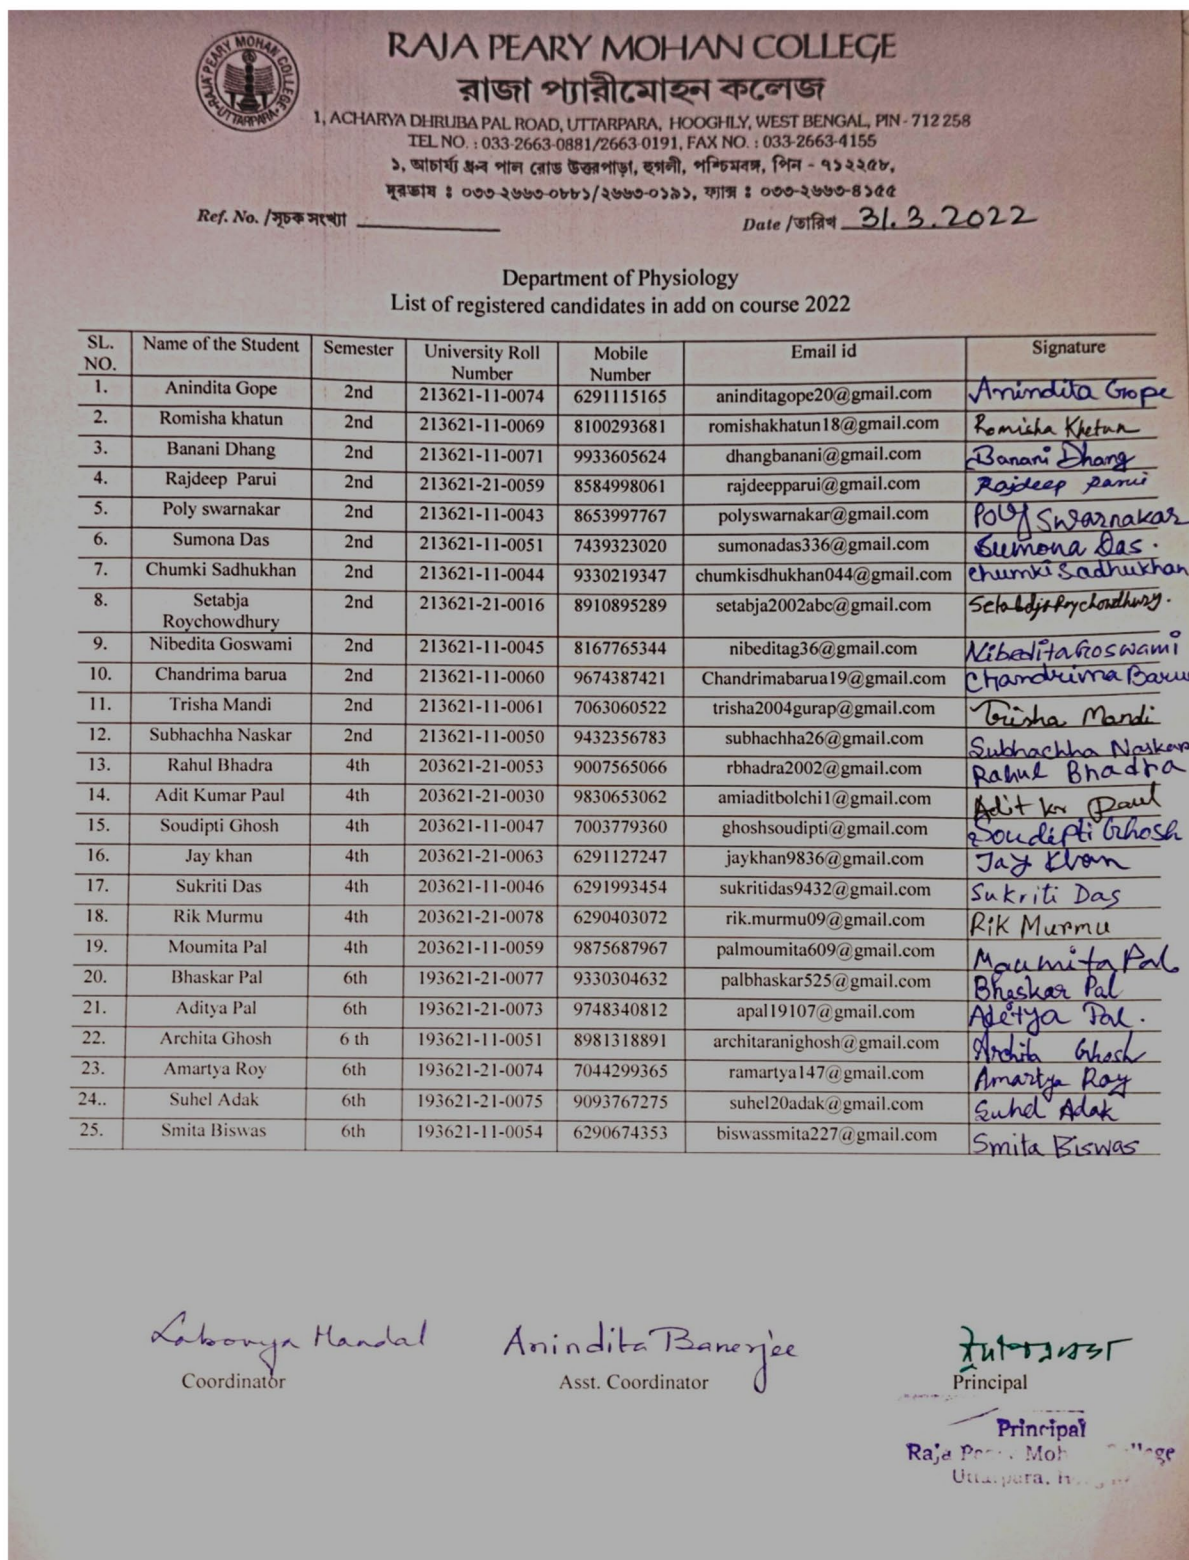 RAJA PEARY MOHAN COLLEGE
রাজা প্যারীমোহন কলেজ
1, ACHARYA DHRUBA PAL ROAD, UTTARPARA, HOOGHLY, WEST BENGAL, PIN - 712 258
TEL NO. : 033-2663-0881/2663-0191, FAX NO. : 033-2663-4155
১, আচার্য্য ধ্রুব পাল রোড উত্তরপাড়া, হুগলী, পশ্চিমবঙ্গ, পিন - ৭১২২৫৮,
দূরভাষ : ০৩৩-২৬৬৩-০৮৮১/২৬৬৩-০১৯১, ফ্যাক্স : ০৩৩-২৬৬৩-৪১৫৫
Ref. No. /সূচক সংখ্যা Date /তারিখ 31.3.2022
RAJA PEARY MOHAN COLLEGE UTTARPARA
Department of Physiology
List of registered candidates in add on course 2022
SL. NO. Name of the Student Semester University Roll Number Mobile Number Email id Signature
1. Anindita Gope 2nd 213621-11-0074 6291115165 aninditagope20@gmail.com Anindita Gope
2. Romisha khatun 2nd 213621-11-0069 8100293681 romishakhatun18@gmail.com Romisha Khatun
3. Banani Dhang 2nd 213621-11-0071 9933605624 dhangbanani@gmail.com Banani Dhang
4. Rajdeep Parui 2nd 213621-21-0059 8584998061 rajdeepparui@gmail.com Rajdeep Parui
5. Poly swarnakar 2nd 213621-11-0043 8653997767 polyswarnakar@gmail.com Poly Swarnakar
6. Sumona Das 2nd 213621-11-0051 7439323020 sumonadas336@gmail.com Sumona Das.
7. Chumki Sadhukhan 2nd 213621-11-0044 9330219347 chumkisdhukhan044@gmail.com Chumki Sadhukhan
8. Setabja Roychowdhury 2nd 213621-21-0016 8910895289 setabja2002abc@gmail.com Setabdja Roychowdhury.
9. Nibedita Goswami 2nd 213621-11-0045 8167765344 nibeditag36@gmail.com Nibedita Goswami
10. Chandrima barua 2nd 213621-11-0060 9674387421 Chandrimabarua19@gmail.com Chandrima Baru
11. Trisha Mandi 2nd 213621-11-0061 7063060522 trisha2004gurap@gmail.com Trisha Mandi
12. Subhachha Naskar 2nd 213621-11-0050 9432356783 subhachha26@gmail.com Subhachha Naskar
13. Rahul Bhadra 4th 203621-21-0053 9007565066 rbhadra2002@gmail.com Rahul Bhadra
14. Adit Kumar Paul 4th 203621-21-0030 9830653062 amiaditbolchi1@gmail.com Adit kr Paul
15. Soudipti Ghosh 4th 203621-11-0047 7003779360 ghoshsoudipti@gmail.com Soudipti Ghosh
16. Jay khan 4th 203621-21-0063 6291127247 jaykhan9836@gmail.com Jay Khan
17. Sukriti Das 4th 203621-11-0046 6291993454 sukritidas9432@gmail.com Sukriti Das
18. Rik Murmu 4th 203621-21-0078 6290403072 rik.murmu09@gmail.com Rik Murmu
19. Moumita Pal 4th 203621-11-0059 9875687967 palmoumita609@gmail.com Moumita Pal
20. Bhaskar Pal 6th 193621-21-0077 9330304632 palbhaskar525@gmail.com Bhaskar Pal
21. Aditya Pal 6th 193621-21-0073 9748340812 apal19107@gmail.com Aditya Pal.
22. Archita Ghosh 6 th 193621-11-0051 8981318891 architaranighosh@gmail.com Archita Ghosh
23. Amartya Roy 6th 193621-21-0074 7044299365 ramartya147@gmail.com Amartya Roy
24.. Suhel Adak 6th 193621-21-0075 9093767275 suhel20adak@gmail.com Suhel Adak
25. Smita Biswas 6th 193621-11-0054 6290674353 biswassmita227@gmail.com Smita Biswas
Labonya Mandal Anindita Banerjee
Coordinator Asst. Coordinator Principal
Principal
Raja Moh